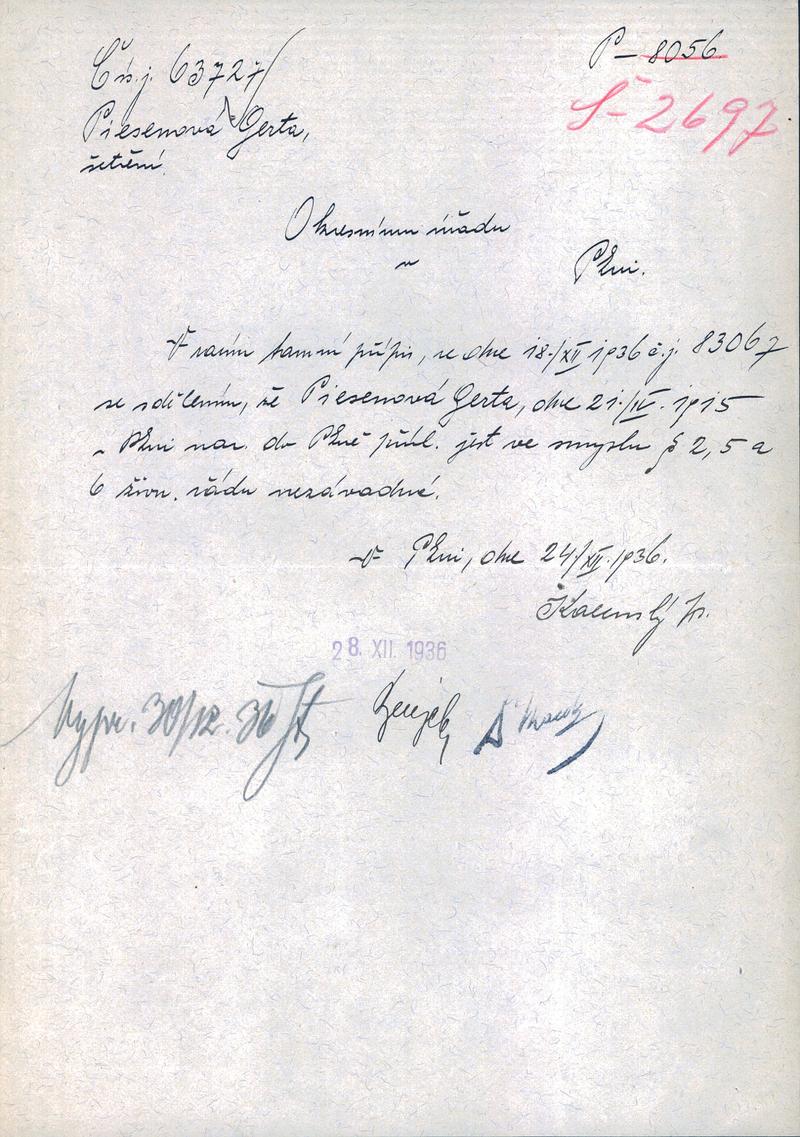 Čís. j. 63727/
P – 8056
Š-2697
Piesenová Gerta,
šetření.
Okresnímu úřadu
v
Plzni.
Vracím tamní přípis, ze dne 18./XII 1936 č.j. 83067
se sdělením, že Piesenová Gerta, dne 21./IV. 1915
v Plzni nar. do Plzně přísl. jest ve smyslu § 2, 5 a
6 živn. řádu nezávadná.
V Plzni, dne 24/XII. 1936.
28. XII. 1936
Vypr. 30/12. 36